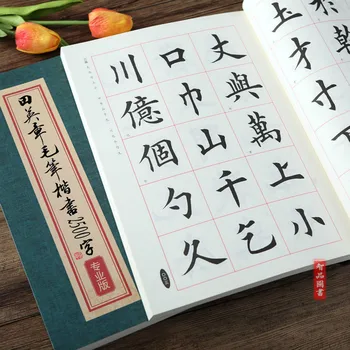 田英章毛筆楷書2500字
专业版
丈與萬上小
口巾山千乞
川億個勺久
寸
土才下
智品圖書